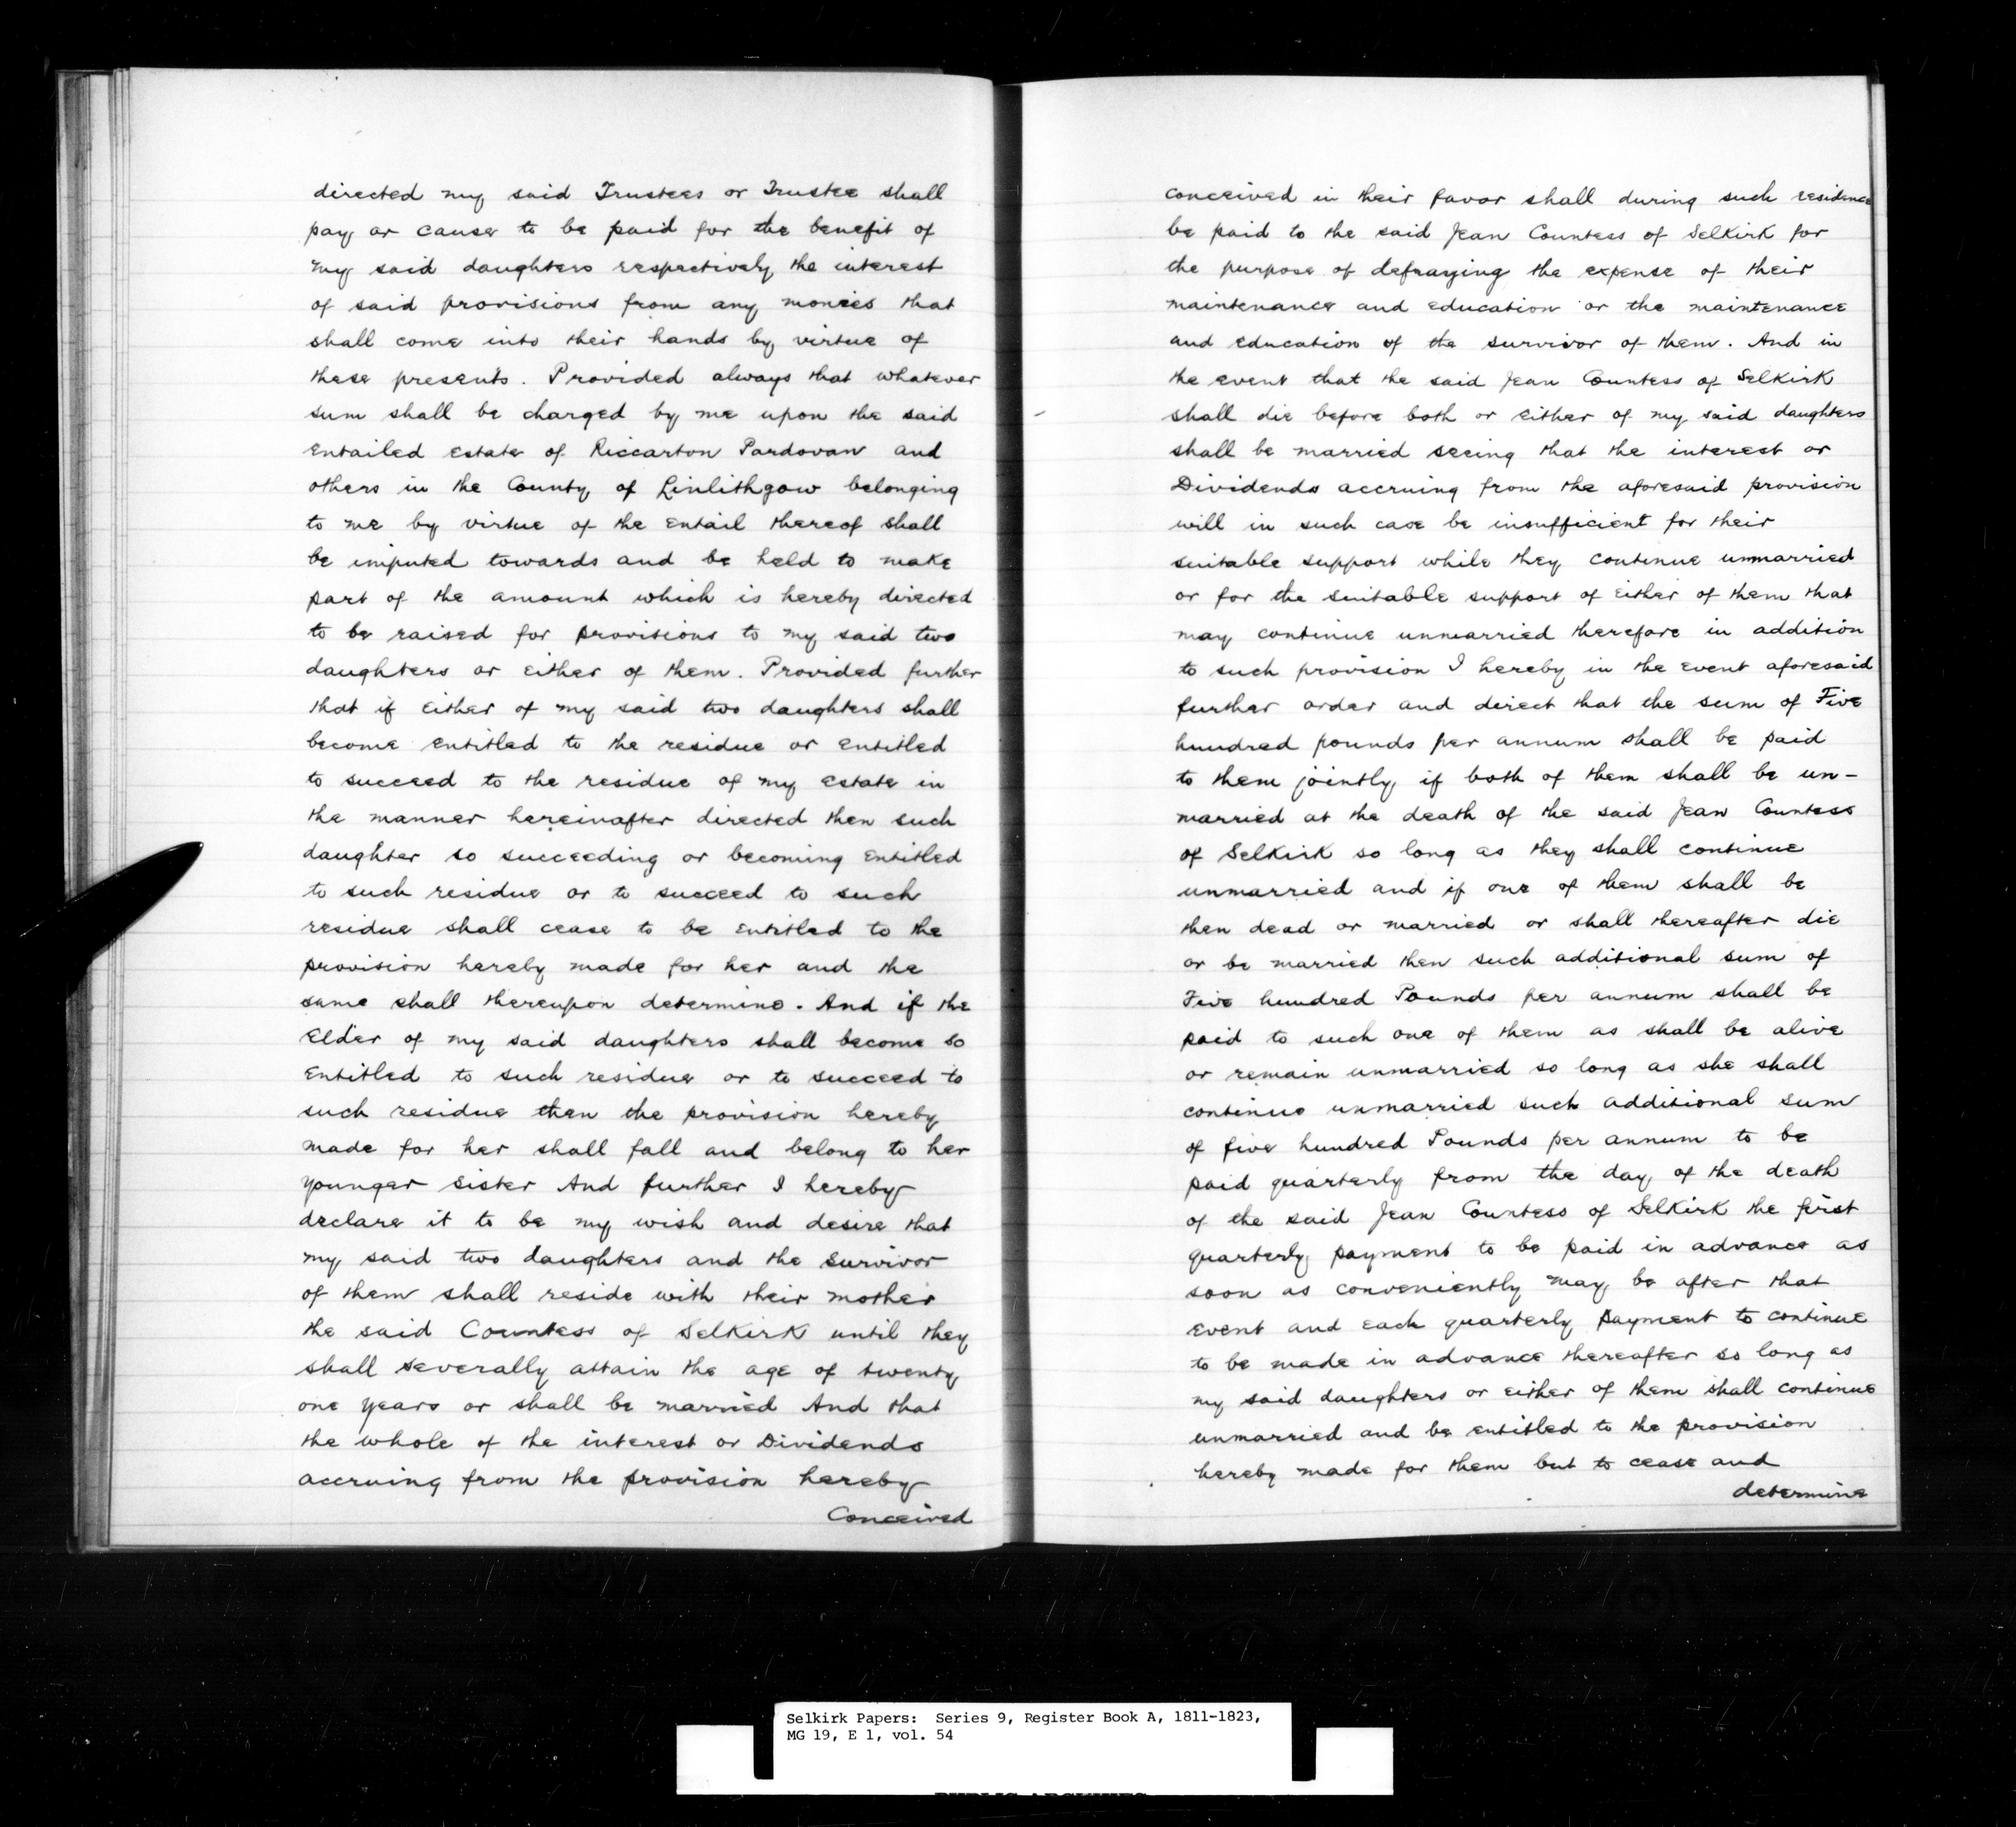 directed my said Trustees or Trustee shall
pay or cause to be paid for the benefit of
my said daughters respectively the interest
of said provisions from any monies that
shall come into their hands by virtue of
these presents. Provided always that whatever
sum shall be charged by me upon the said
entailed estate of Riccarton Pardovan and
others in the County of Linlithgow belonging
to me by virtue of the entail thereof shall
be imputed towards and be held to make
part of the amount which is hereby directed
to be raised for provisions to my said two
daughters or either of them. Provided further
that if either of my said two daughters shall
become entitled to the residue or entitled
to succeed to the residue of my estate in
the manner hereinafter directed then such
daughter so succeeding or becoming entitled
to such residue or to succeed to such
residue shall cease to be entitled to the
provision hereby made for her and the
same shall thereupon determine. And if the
Elder of my said daughters shall become so
entitled to such residue or to succeed to
such residue then the provision hereby
made for her shall fall and belong to her
younger sister And further I hereby
declare it to be my wish and desire that
my said two daughters and the survivor
of them shall reside with their mother
the said Countess of Selkirk until they
shall severally attain the age of twenty
one years or shall be married And that
the whole of the interest or Dividends
accruing from the provision hereby
Conceived
conceived in their favor shall during such residence
be paid to the said Jean Countess of Selkirk for
the purpose of defraying the expense of their
maintenance and education or the maintenance
and education of the survivor of them. And in
the event that the said Jean Countess of Selkirk
shall die before both or either of my said daughters
shall be married seeing that the interest or
Dividends accruing from the aforesaid provision
will in such case be insufficient for their
suitable support while they continue unmarried
or for the suitable support of either of them that
may continue unmarried therefore in addition
to such provision I hereby in the event aforesaid
further order and direct that the sum of Five
hundred pounds per annum shall be paid
to them jointly if both of them shall be un-
married at the death of the said Jean Countess
of Selkirk so long as they shall continue
unmarried and if one of them shall be
then dead or married or shall thereafter die
or be married then such additional sum of
Five hundred Pounds per annum shall be
paid to such one of them as shall be alive
or remain unmarried so long as she shall
continue unmarried such additional sum
of five hundred Pounds per annum to be
paid quarterly from the day of the death
of the said Jean Countess of Selkirk the first
quarterly payment to be paid in advance as
soon as conveniently may be after that
event and each quarterly payment to continue
to be made in advance thereafter so long as
my said daughters or either of them shall continue
unmarried and be entitled to the provision
hereby made for them but to cease and
determine
Selkirk Papers: Series 9, Register Book A, 1811-1823,
MG 19, E 1, vol. 54